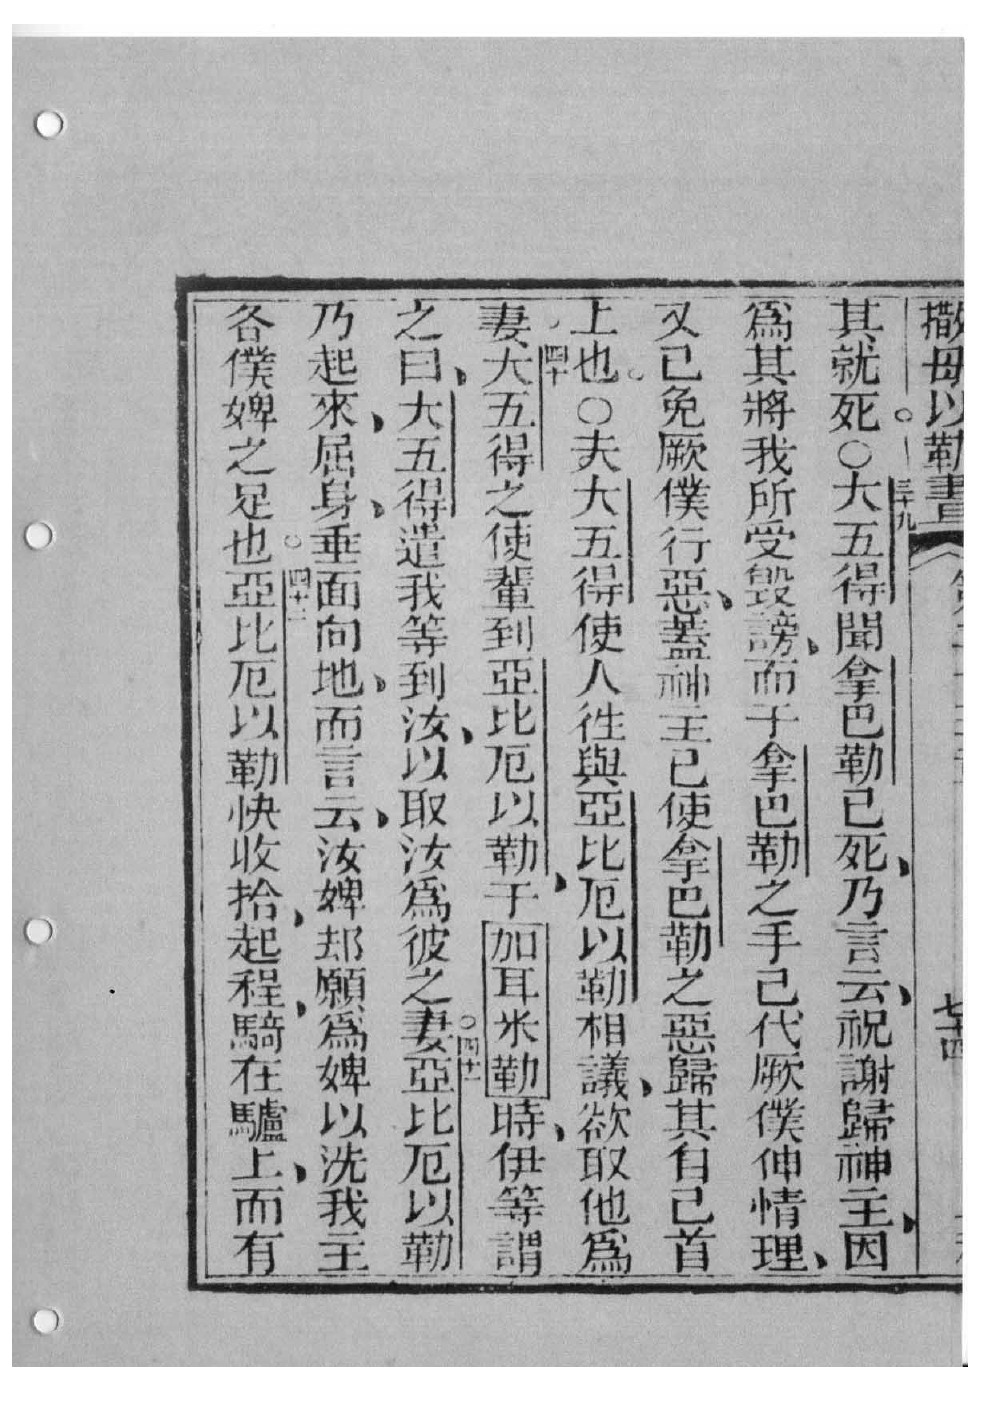 撒母以勒書
七十四
其就死〇三十九大五得聞拿巴勒已死乃言云祝謝歸神主因
為其將我所受毀謗而于拿巴勒之手已代厥僕伸情理
又已免厥僕行惡蓋神主已使拿巴勒之惡歸其自己首
上也〇夫大五得使人徃與亞比厄以勒相議欲取他為
妻四十大五得之使輩到亞比厄以勒于加耳米勒時伊等謂
之曰大五得遣我等到汝以取汝為彼之妻〇四十一亞比厄以勒
乃起來屈身垂面向地而言云汝婢却願為婢以洗我主
各僕婢之足也〇四十二亞比厄以勒快收拾起程騎在驢上而有